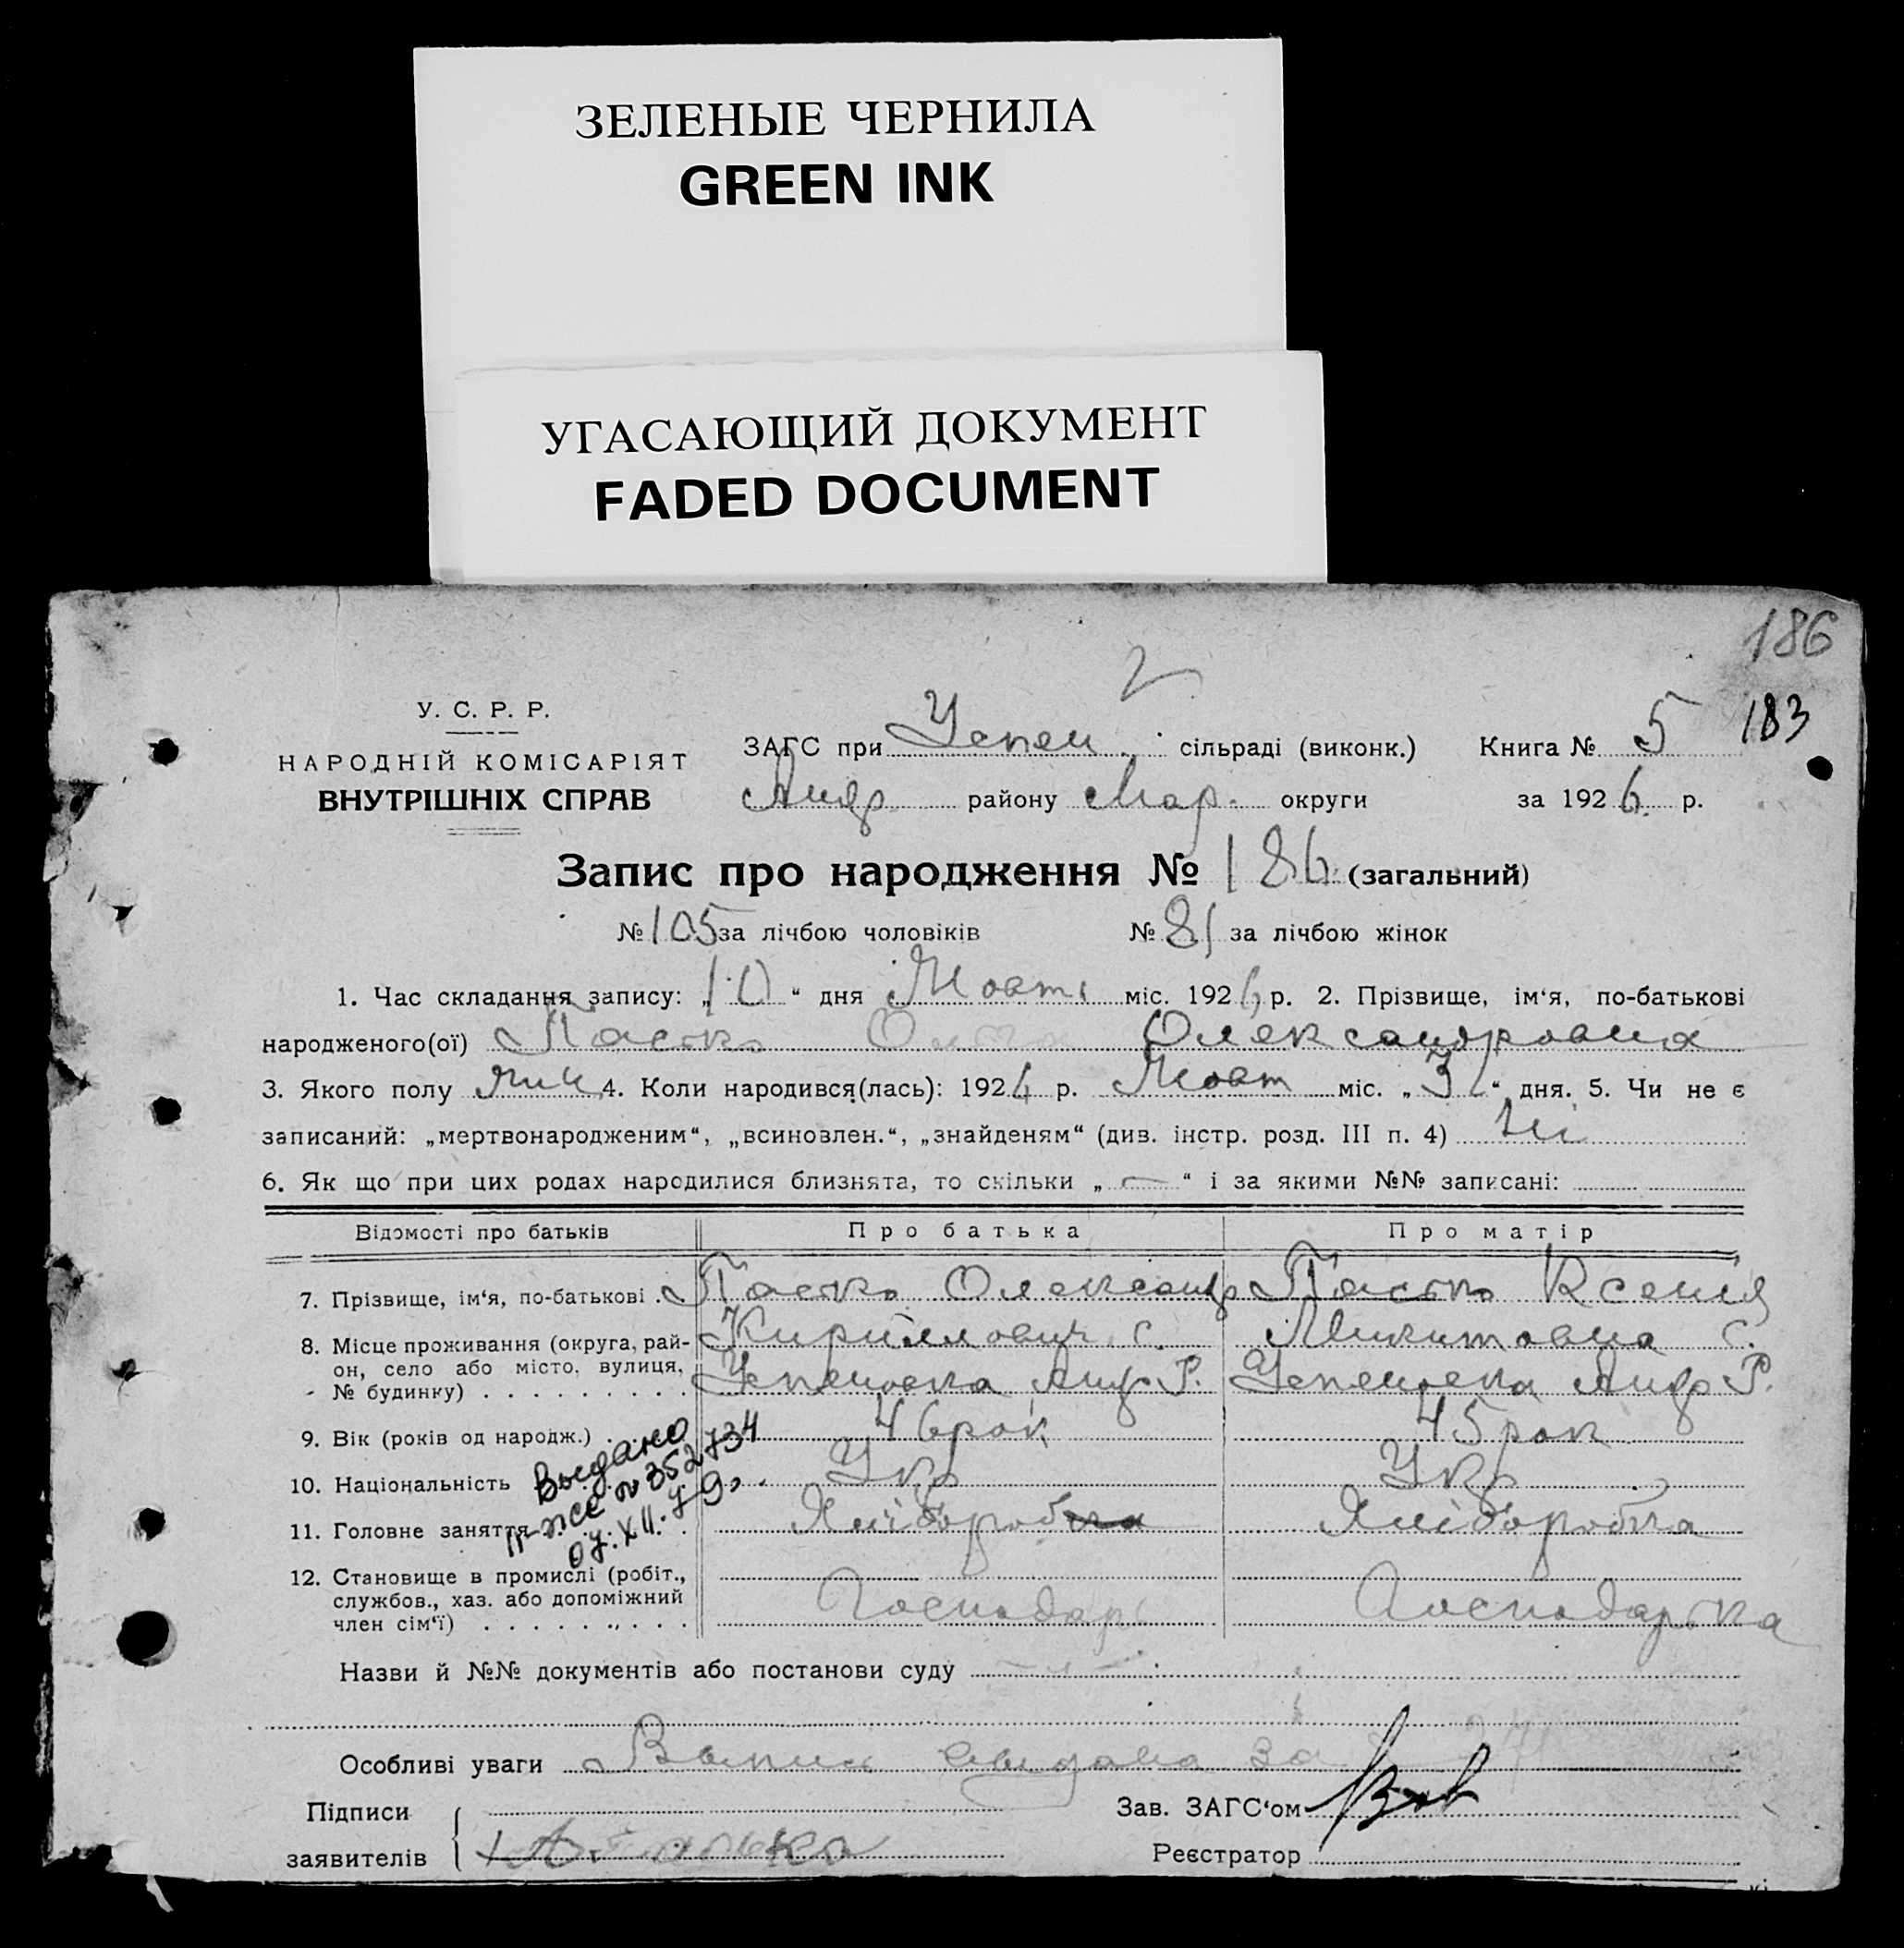 ЗЕЛЕНЫЕ ЧЕРНИЛА
GREEN INK
УГАСАЮЩИЙ ДОКУМЕНТ
FADED DOCUMENT
186
183
У. С. Р. Р.
НАРОДНІЙ КОМІСАРІЯТ
ВНУТРІШНІХ СПРАВ
ЗАГС при Успен. сільраді (виконк.) Книга № 5
Андр. району Мар. округи за 1926 р.
Запис про народження № 186 (загальний)
№ 105 за лічбою чоловіків № 81 за лічбою жінок
1. Час складання запису: „10“ дня Жовт міс. 1926 р. 2. Прізвище, ім‘я, по-батькові
народженого(ої) Пастко Олександровна
3. Якого полу 4. Коли народився(лась): 192 р. Жовт міс. „3“ дня. 5. Чи не є
записаний: „мертвонародженим“, „всиновлен.“, „знайденям“ (див. інстр. розд. III п. 4) Ні
6. Як що при цих родах народилися близнята, то скільки „—“ і за якими №№ записані:
Відомості про батьків Про батька Про матір
7. Прізвище, ім‘я, по-батькові Пастко Олександр Пастко Ксенія
8. Місце проживання (округа, рай- Кирилович с. Микитовна с.
он, село або місто, вулиця, Успеновка Андр Р. Успеновка Андр Р.
№ будинку)
9. Вік (років од народж.) 46 рок 45 рок
10. Національність Укр Укр
Выдано
№ 352734
11. Головне заняття Хліборобча Хліборобча
12. Становище в промислі (робіт.,
службов., хаз. або допоміжний Господарь Господарька
член сім‘ї)
Назви й №№ документів або постанови суду
Особливі уваги Выпис выдана за
Підписи Зав. ЗАГС‘ом
заявителів Реєстратор